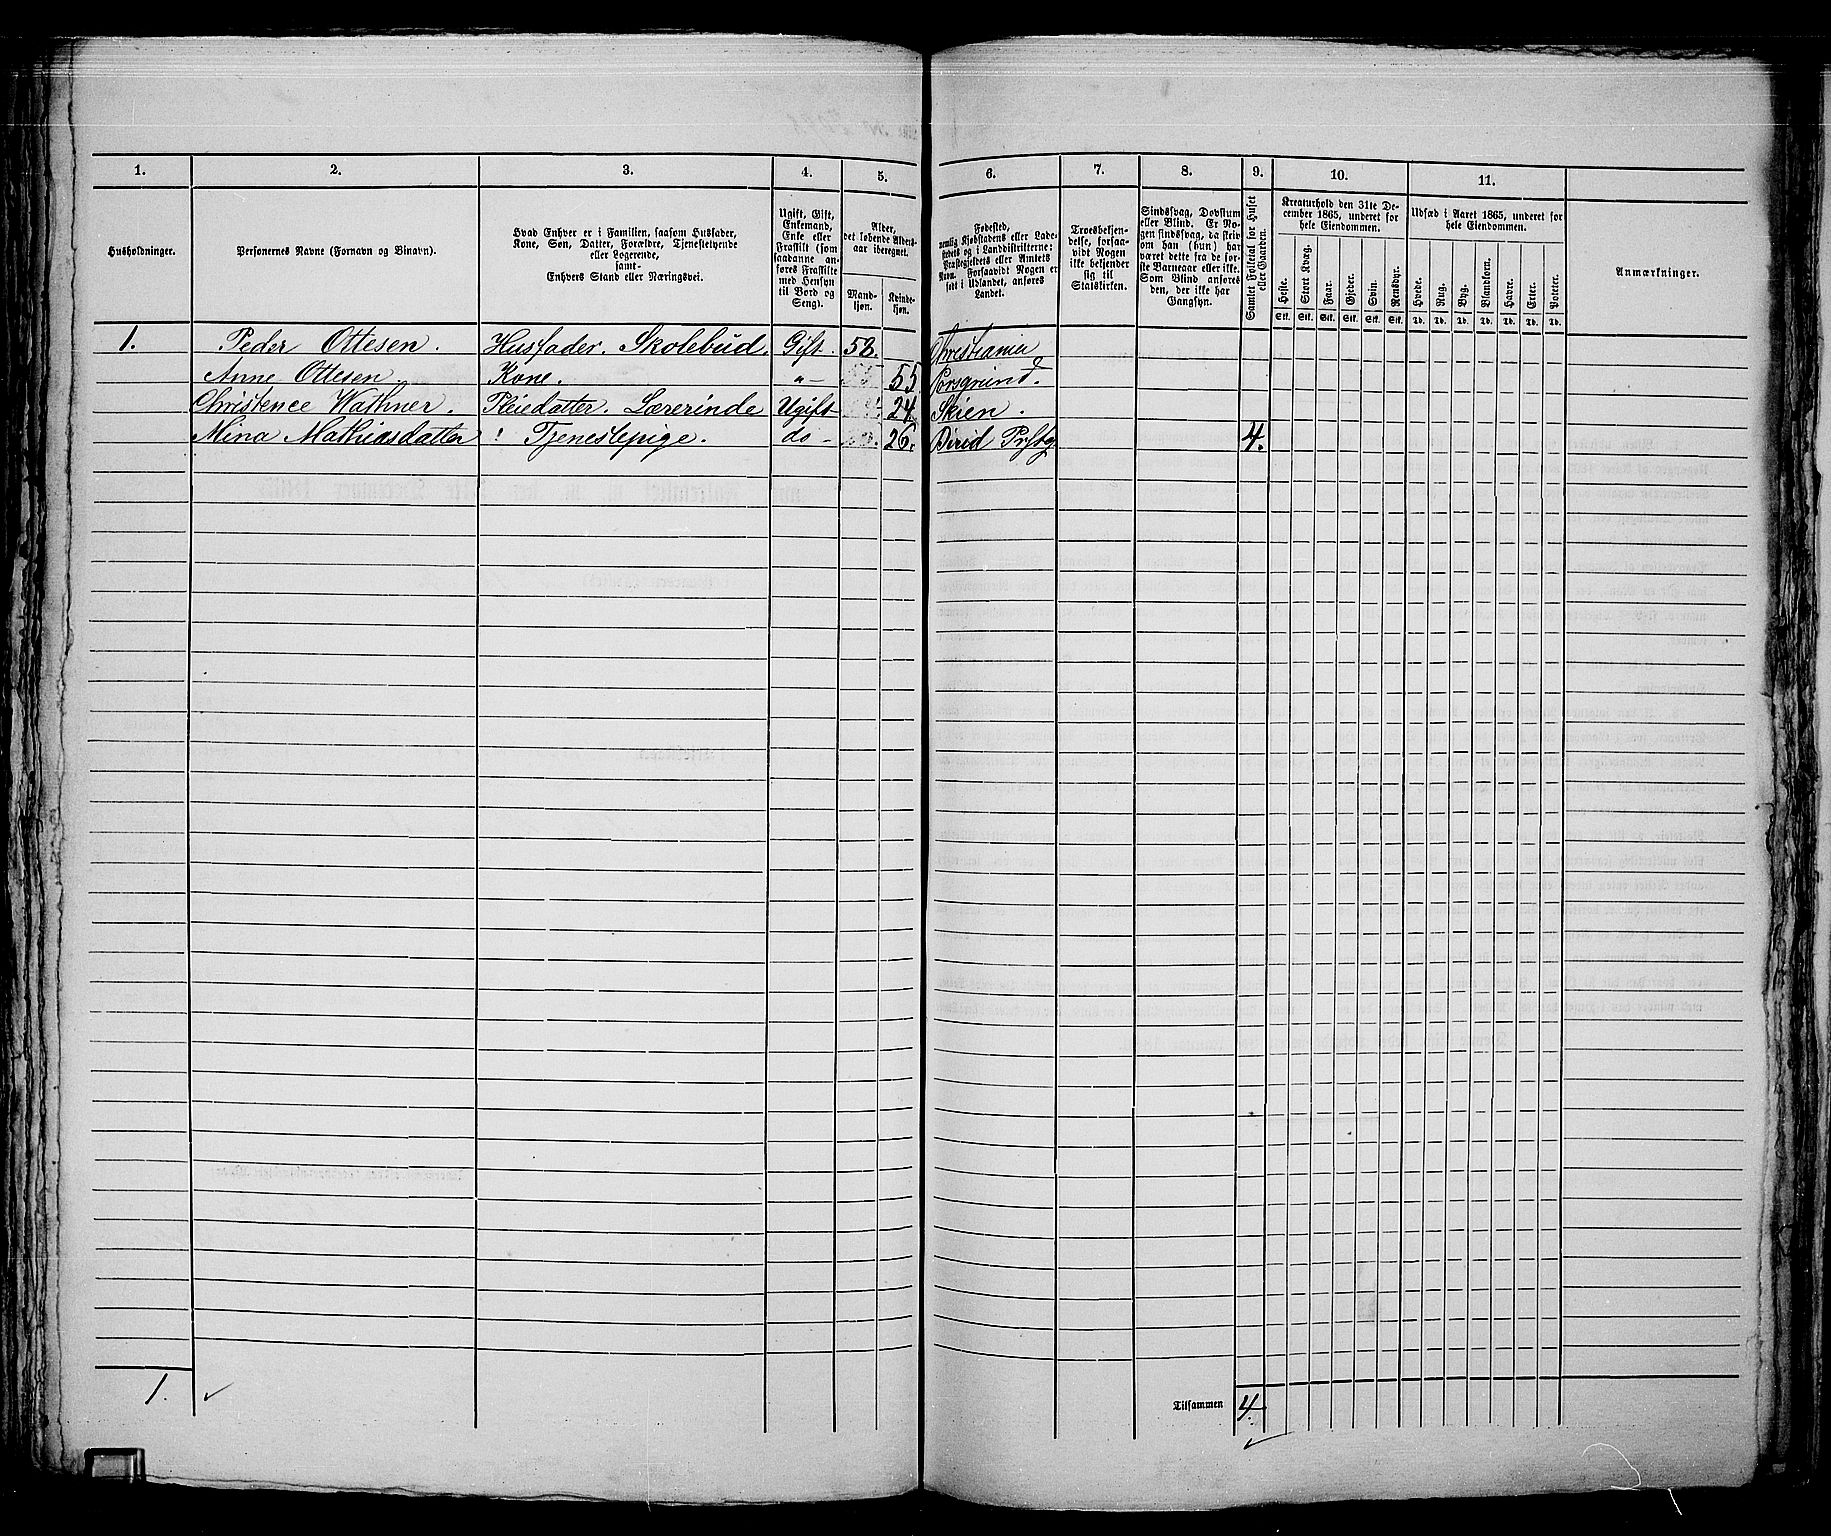 1.
2.
3.
4.
5.
6.
7.
8.
9.
10.
11.
Husholdninger.
Personernes Navne (Fornavn og Binavn).
Hvad Enhver er i Familien, saasom Husfader,
Kone, Søn, Datter, Forældre, Tjenestetyende
eller Logerende,
samt
Enhvers Stand eller Næringsvei.
Ugift, Gift,
Enkemand,
Enke eller
Fraskilt (som
saadanne an-
føres Fraskilte
med Hensyn
til Bord og
Seng).
Alder,
det løbende Alders-
aar iberegnet.
Mand-
kjøn.
Kvinde-
kjøn.
Fødested,
nemlig Kjøbstadens eller Lade-
stedets og i Landdistrikterne:
Præstegjeldets eller Amtets
Navn. Forsaavidt Nogen er
født i Udlandet, anføres
Landet.
Troesbekjen-
delse, forsaa-
vidt Nogen
ikke bekjender
sig til
Statskirken.
Sindssvag, Døvstum
eller Blind. Er No-
gen sindssvag, da skriv
om han (hun) har
været dette fra de før-
ste Barneaar eller ikke.
Som Blind anføres
den, der ikke har
Gangsyn.
Samlet Folketal for Huset
eller Gaarden.
Kreaturhold den 31te De-
cember 1865, underet for
hele Eiendommen.
Heste.
Stort Kvæg.
Faar.
Gjeder.
Svin.
Rensdyr.
Stk. Stk. Stk. Stk. Stk. Stk.
Udsæd i Aaret 1865, underet for
hele Eiendommen.
Hvede.
Rug.
Byg.
Blandkorn.
Havre.
Erter.
Poteter.
Td. Td. Td. Td. Td. Td. Td.
Anmærkninger.
1. Peder Ottesen. Husfader. Skolebud. Gift. 58. Christiania
Anne Ottesen Kone. "- 55 Porsgrund.
Christence Wathner. Pleiedatter. Lærerinde Ugift 24 Skien.
Mina Mathiasdatter Tjenestepige. do - 26. Birid Prstg 4.
1.
Tilsammen 4.